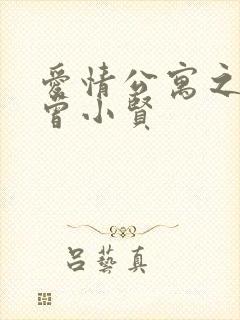 愛情公寓之
曾小賢
呂藝真